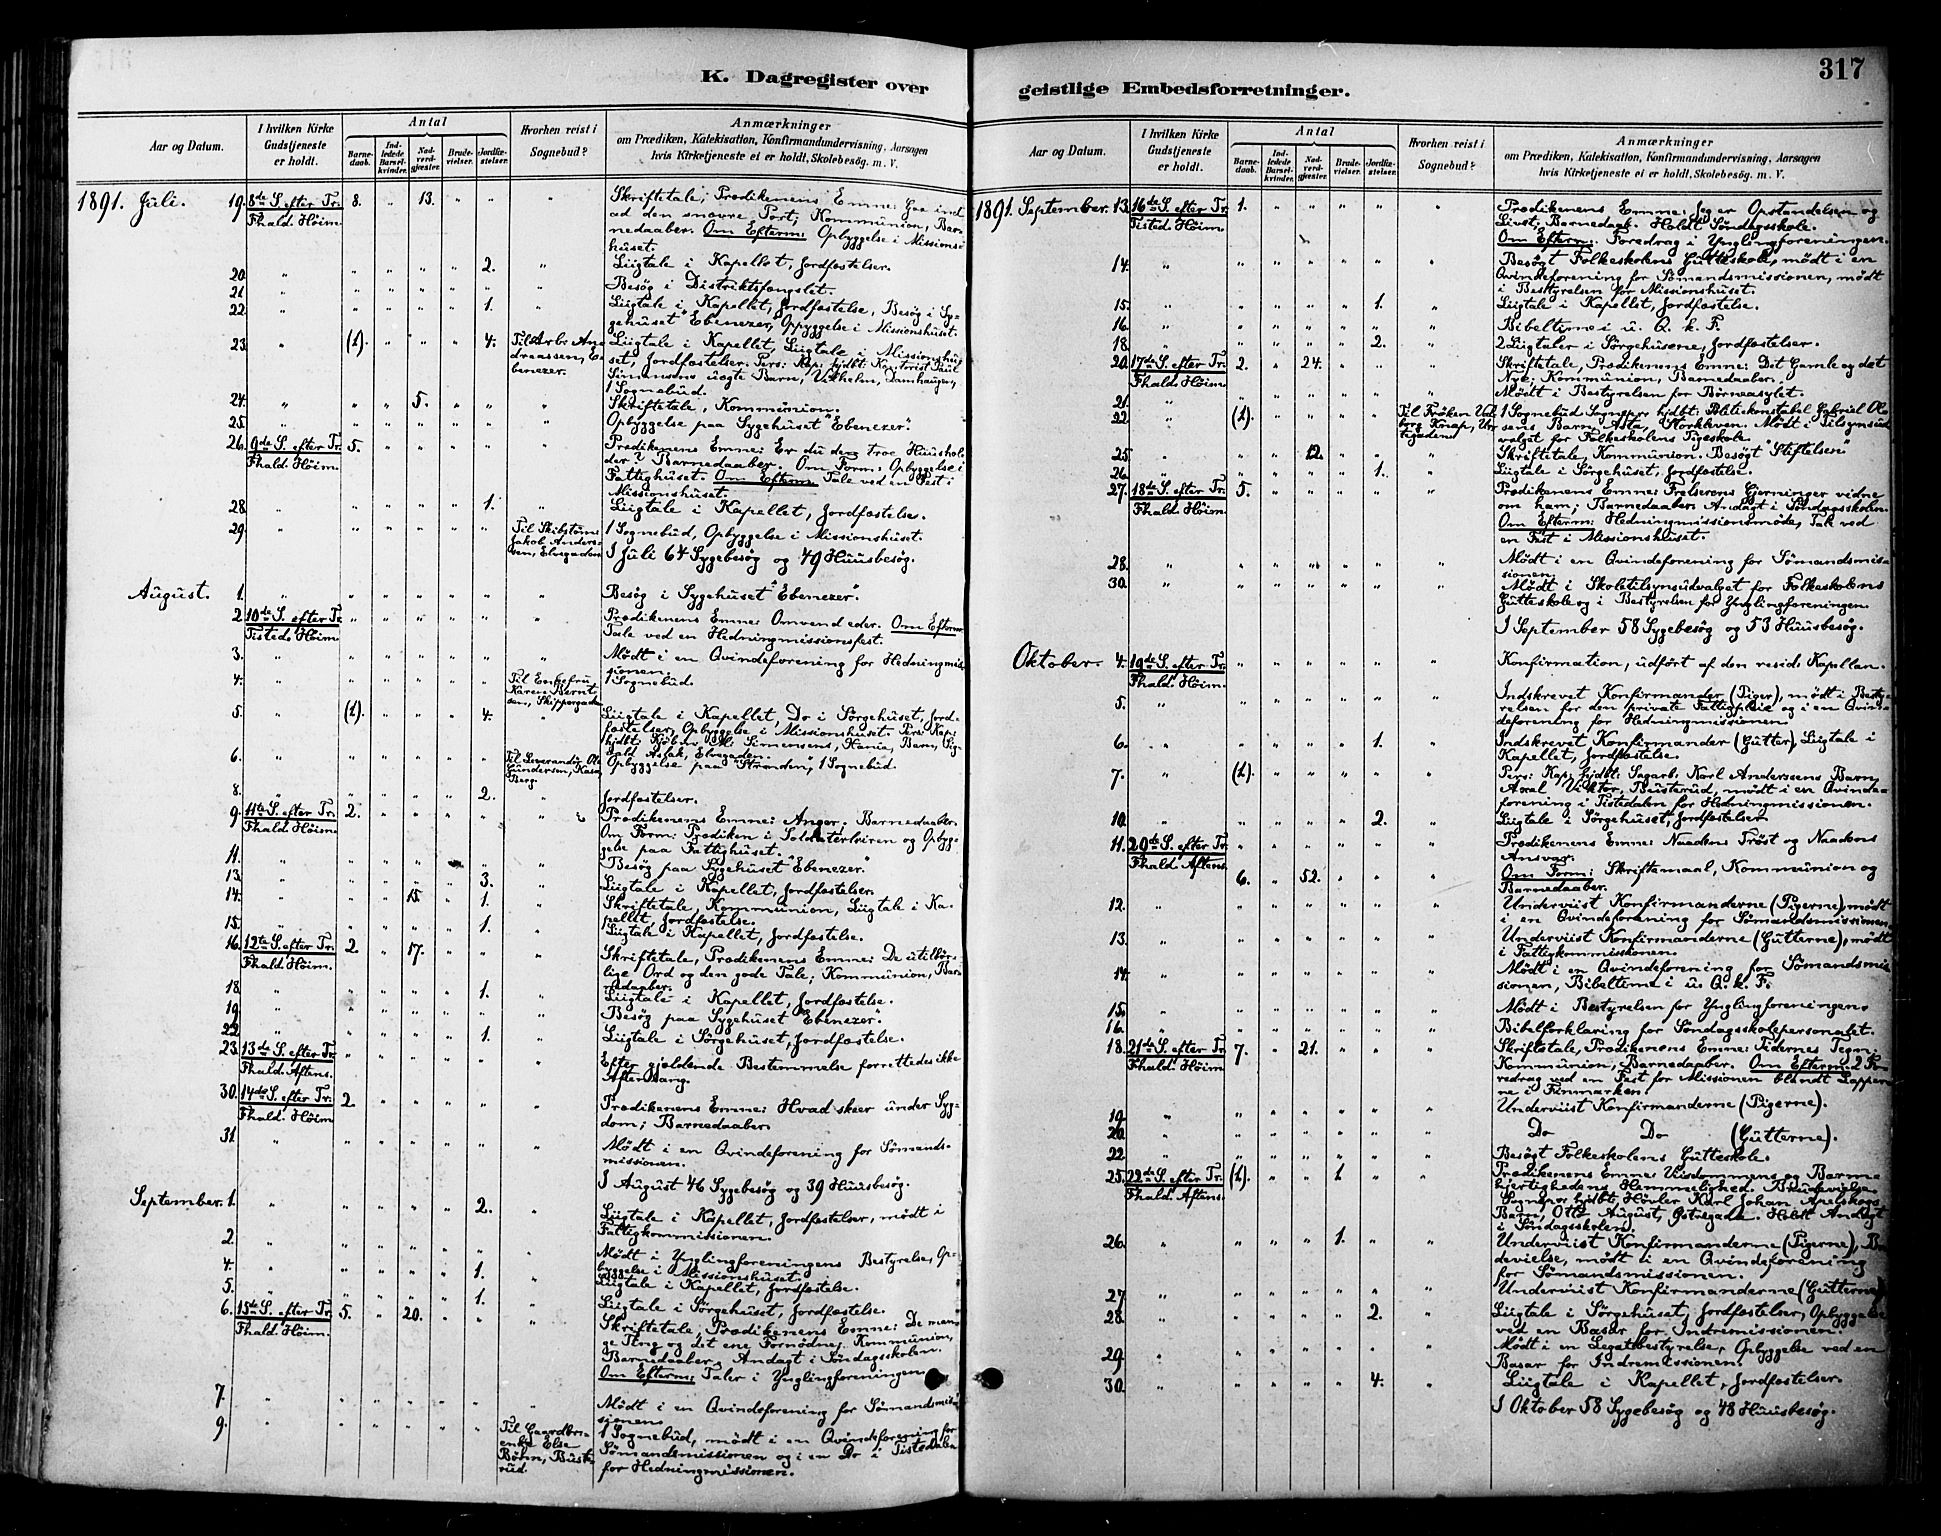 K. Dagregister over
Aar og Datum.
I hvilken Kirke Gudstjeneste er holdt.
Antal
Barnedaab.
Indledede Barselkvinder.
Nadverdgjæster.
Brudevielser.
Jordfæstelser.
Hvorhen reist i Sognebud?
Anmærkninger
om Prædiken, Katekisation, Konfirmandundervisning, Aarsagen
hvis Kirketjeneste ei er holdt, Skolebesøg. m. V.
1891. Juli. 19. 8de S. efter Tr. 8. " 13. " " " Skriftetale; Prædikenens Emne: Gaa ind
Fhald. Høim. ad den snævre Port, Kommúnion, Bar-
nedaaber. Om Efterm: Opbyggelse i Missions-
húset.
20. " " " " " 2. " Liigtale i Kapellet, Jordfæstelser.
21. " " " " " " " Besøg i Distriktsfængslet.
22. " " " " " 1. " Liigtale i Kapellet, Jordfæstelse, Besøg i Sy-
gehúset "Ebenezer", Opbyggelse i Missionshúset.
23. " (1). " " " 4. Til Arb. An- Liigtale i Kapellet, Liigtale i Missionshú-
dreassen, E- set, Jordfæstelser. Pers. Kap. hjdbt: Kontorist Paul
benezer. Simensens uægte Barn, Vilhelm, Damhaugen,
1 Sognebud.
24. " " " 5. " " " Skriftetale, Kommúnion.
25. " " " " " " " Opbyggelse paa Sygehúset "Ebenezer".
26. 9de S. efter Tr. 5. " " " " " Prædikenens Emne: Er du den troe Húushol-
Fhald. Høim. der? Barnedaaber. Om Form: Opbyggelse i
Fattighúset. Om Efterm: Tale ved en Fest i
Missionshúset.
28. " " " " " 1. " Liigtale i Kapellet, Jordfæstelse.
29. " " " " " " Til Skibstøm. 1 Sognebud, Opbyggelse i Missionshúset.
Jakob Anders- I Juli 64 Sygebesøg og 49 Húusbesøg.
sen, Elvegaden
August. 1. " " " " " " " Besøg i Sygehúset "Ebenezer".
2. 10de S. efter Tr. " " " " " " Prædikenens Emne: Omvend eder. Om Efterm:
Tisted. Høim. Tale ved en Hedningmissionsfest.
3. " " " " " " " Mødt i en Qvindeforening for Hedningmis-
sionen.
4. " " " " " " Til Enkefru 1 Sognebud.
Karen Bernt-
sen, Skippergaden
5. " (1). " " " 4. " Liigtale i Kapellet, Do i Sørgehúset, Jord-
fæstelser, Opbyggelse i Missionshúset. Pers. Kap:
hjdbt: Kjøbm. M. Simensens, Hania, Barn, Sig-
vald Aslak, Elvegaden.
6. " " " " " " Til Leverandør Ole Opbyggelse paa "Stranden", 1 Sognebud.
Gundersen, Kasa
Berg.
8. " " " " " 2. " Jordfæstelser.
9. 11te S. efter Tr. 2. " " " " " Prædikenens Emne: Anger. Barnedaaber.
Fhald. Høim. Om Form: Prædiken i Soldaterleiren og Opbyg-
gelse paa Fattighúset.
11. " " " " " " " Besøg paa Sygehúset "Ebenezer"
13. " " " " " 3. " Liigtale i Kapellet, Jordfæstelser.
14. " " " 15. " 1. " Skriftetale, Kommúnion, Liigtale i Ka-
pellet, Jordfæstelse.
15. " " " " " 1. " Liigtale i Kapellet, Jordfæstelse.
16. 12te S. efter Tr. 2 " 17. " " " Skriftetale, Prædikenens Emne: De útilbør-
Fhald. Høim. lige Ord og den gode Tale, Kommúnion, Bar-
nedaaber.
18. " " " " " 1. " Liigtale i Kapellet, Jordfæstelse.
19. " " " " " " " Besøg paa Sygehúset "Ebenezer".
22. " " " " " 1. " Liigtale i Sørgehúset, Jordfæstelse.
23. 13de S. efter Tr. " " " " " " Efter gjældende Bestemmelse forrettedes ikke
Fhald. Aftens. Aftensang.
30. 14de S. efter Tr. 2 " " " " " Prædikenens Emne: Hvad skeer únder Syg-
Fhald. Høim. dom; Barnedaaber.
31. " " " " " " " Mødt i en Qvindeforening for Sømands-
missionen.
I August 46 Sygebesøg og 39 Húusbesøg.
September. 1. " " " " " 2. " Liigtale i Kapellet, Jordfæstelser, mødt i
Fattigkommissionen.
2. " " " " " " " Mødt i Ynglingforeningens Bestyrelse, Op-
byggelse i Missionshúset.
4. " " " " " 1. " Liigtale i Kapellet, Jordfæstelse.
5. " " " " " 1. " Liigtale i Sørgehúset, Jordfæstelse.
6. 15de S. efter Tr. 5. " 20. " " " Skriftetale, Prædikenens Emne: De man-
Fhald. Høim. ge Ting og det ene Fornødne, Kommúnion,
Barnedaaber, Andagt i Søndagsskolen.
Om Efterm: Taler i Ynglingforeningen
7. " " " " " " " Mødt i en Qvindeforening for Sømandsmis-
sionen
9. " " " " " " Til Gaardbr- 1 Sognebud, mødt i en Qvindeforening for
enke Else Sømandsmissionen og i en Do i Tistedalen
Bøhn, Buste- for Hedningmissionen.
rud.
geistlige Embedsforretninger.
317
Aar og Datum.
I hvilken Kirke Gudstjeneste er holdt.
Antal
Barnedaab.
Indledede Barselkvinder.
Nadverdgjæster.
Brudevielser.
Jordfæstelser.
Hvorhen reist i Sognebud?
Anmærkninger
om Prædiken, Katekisation, Konfirmandundervisning, Aarsagen
hvis Kirketjeneste ei er holdt, Skolebesøg. m. V.
1891. September. 13. 16de S. efter Tr. 1. " " " " " Prædikenens Emne: Jeg er Opstandelsen og
Tisted. Høim. Livet, Barnedaab. Holdt Søndagsskole.
Om Efterm: Foredrag i Ynglingforeningen.
14. " " " " " " " Besøgt Folkeskolens Gútteskole, mødt i en
Qvindeforening for Sømandsmissionen, mødt
i Bestyrelsen for Missionshúset.
15. " " " " " 1. " Liigtale i Kapellet, Jordfæstelse.
16. " " " " " " " Bibeltime i u. Q. k. F.
18. " " " " " 2. " 2 Liigtaler i Sørgehúsene, Jordfæstelser.
20. 17de S. efter Tr. 2. " 24. " " " Skriftetale, Prædikenens Emne: Det Gamle og det
Fhald. Høim. Nye; Kommúnion, Barnedaaber.
21. " " " " " " " Mødt i Bestyrelsen for Børneasylet.
22. " (1). " " " " Til Frøken Val- 1 Sognebud Sognepr. hjdbt: Politikonstabel Gabriel Ol-
borg Knap, Vær- sens Barn, Asta, Hørkleven. Mødt i Tilsynsúd-
stegaden valget for Folkeskolens Pigeskole.
25. " " " 12. " " " Skriftetale, Kommúnion. Besøgt "Stiftelsen"
26. " " " " " 1. " Liigtale i Sørgehúset, Jordfæstelse.
27. 18de S. efter Tr. 5. " " " " " Prædikenens Emne: Frelserens Gjerninger vidne
Fhald. Høim. om ham; Barnedaaber. Andagt i Søndagsskolen.
Om Efterm: Hedningmissionsmøde, Tale ved
en Fest i Missionshúset.
28. " " " " " " " Mødt i en Qvindeforening for Sømandsmis-
sionen.
30. " " " " " " " Mødt i Skoletilsynsúdvalget for Folkeskolens
Gútteskole og i Bestyrelsen for Ynglingforeningen.
I September 58 Sygebesøg og 53 Húusbesøg.
Oktober. 4. 19de S. efter Tr. " " " " " " Konfirmation, údført af den resid. Kapellan.
Fhald. Høim.
5. " " " " " " " Indskrevet Konfirmander (Piger), mødt i Besty-
relsen for den private Fattigpleie og i en Qvin-
deforening for Hedningmissionen
6. " " " " " 1. " Indskrevet Konfirmander (Gútter), Liigtale i
Kapellet, Jordfæstelse.
7. " (1). " " " " " Pers: Kap: hjdbt: Sagarb. Karl Anderssens Barn,
Axel Viktor, Busterud, mødt i en Qvinde-
forening i Tistedalen for Hedningmissionen.
10. " " " " " 2. " Liigtale i Sørgehúset, Jordfæstelser
11. 20de S. efter Tr. " " " " " " Prædikenens Emne: Naadens Trøst og Naadens
Fhald. Aftens. Ansvar.
6. " 52. " " " Om Form: Skriftemaal, Kommúnion og
Barnedaaber.
12. " " " " " " " Underviist Konfirmanderne (Pigerne), mødt
i en Qvindeforening for Sømandsmissionen,
13. " " " " " " " Underviist Konfirmanderne (Gútterne), mødt
i Fattigkommissionen.
14. " " " " " " " Mødt i en Qvindeforening for Sømandsmis-
sionen, Bibeltime i u. Q. k. F.
15. " " " " " " " Mødt i Bestyrelsen for Ynglingforeningen.
16. " " " " " " " Bibelforklaring for Søndagsskolepersonalet.
18. 21de S. efter Tr. 7. " 21. " " " Skriftetale, Prædikenens Emne: Tidernes Tegn.
Fhald. Høim. Kommúnion, Barnedaaber. Om Efterm: 2 Fo-
redrag ved en Fest for Missionen blandt Lapper-
ne i Finmarken.
19. " " " " " " " Underviist Konfirmanderne (Pigerne).
20. " " " " " " " Do Do (Gútterne).
22. " " " " " " " Besøgt Folkeskolens Gútteskole.
25. 22de S. efter Tr. (1). " " 1 " " Prædikenens Emne: Visdommens og Barm-
Fhald. Aftens. hjertighedens Hemmelighed. Brudevielse.
Sognepr. hjdbt: Høvler Karl Johan Apelskogs
Barn, Otto August, Østregade. Holdt Andagt
i Søndagsskolen.
26. " " " " 1. " " Underviist Konfirmanderne (Pigerne), Bru-
devielse, mødt i en Qvindeforening
for Sømandsmissionen.
27. " " " " " " " Underviist Konfirmanderne (Gútterne)
28. " " " " " 2. " Liigtale i Sørgehúset, Jordfæstelser, Opbyggelse
ved en Basar for Indremissionen.
29. " " " " " " " Mødt i en Legatbestyrelse, Opbyggelse ved en
Basar for Indremissionen.
30. " " " " " 4. " Liigtale i Kapellet, Jordfæstelser.
I Oktober 58 Sygebesøg og 48 Húusbesøg.